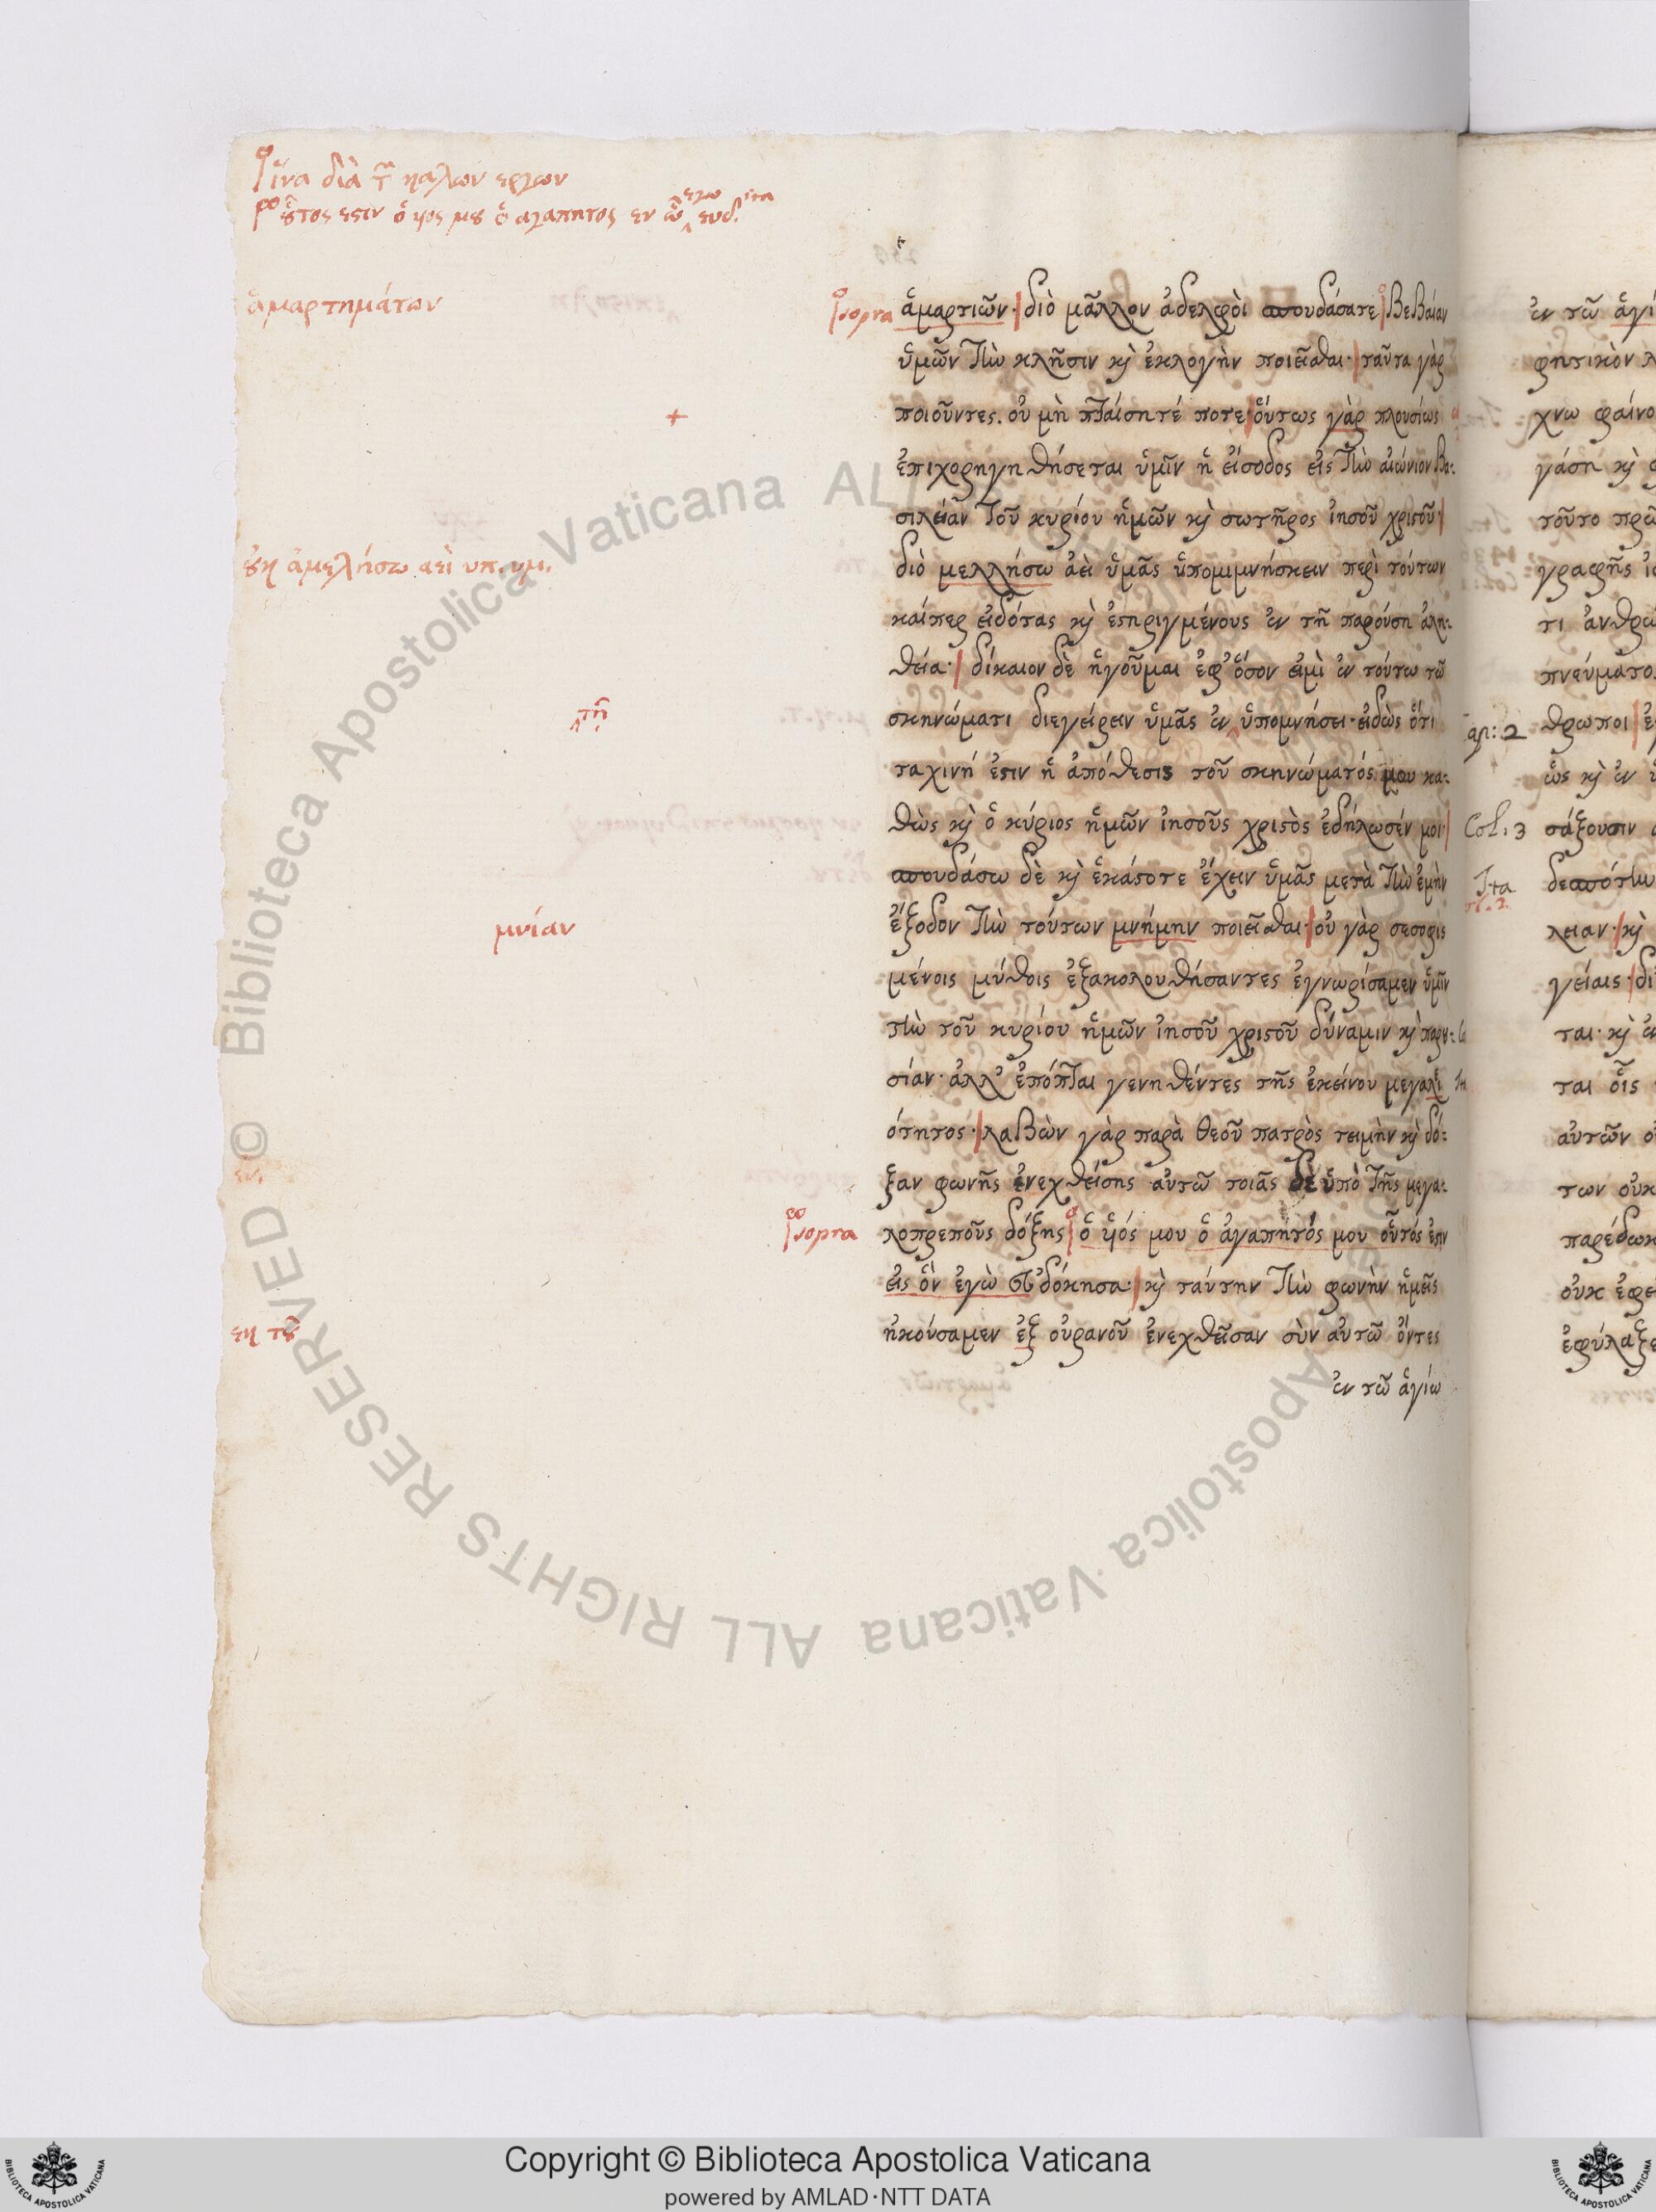 ἵνα διὰ τ̄ καλων εργων
ȣ̓τος εστιν ὁ υιος μȣ ὁ αγαπητος εν ᾧ εγω ευδ.
ἁμαρτημάτων
sopra
ἁμαρτιῶν· διὸ μᾶλλον ἀδελφὸι σπουδάσατε βεβαίαν
ὑμῶν τὴν κλῆσιν κὶ ἐκλογὴν ποιεῖσθαι· ταῦτα γὰρ
+
ποιοῦντες. οὐ μὴ πταίσητέ ποτε οὕτως γὰρ πλουσίως
ἐπιχορηγηθήσεται ὑμῖν ἡ εἴσοδος εἰς τὴν αἰώνιον βα-
σιλείαν τοῦ κυρίου ἡμῶν κὶ σωτῆρος ἰησοῦ χριστοῦ·
ȣκ ἀμελήσω αεὶ υπ. υμ.
διὸ μελλήσω ἀὲι ὑμᾶς ὑπομιμνήσκειν περὶ τούτων
καίπερ εἰδότας κὶ ἐστηριγμένους ἐν τῆ παρόυση ἀλη-
θεία· δίκαιον δὲ ἡγοῦμαι ἐφ' ὅσον εἰμὶ ἐν τούτω τῶ
τῆ
σκηνώματι διεγείρειν ὑμᾶς ἐν ὑπομνήσει· εἰδὼς ὅτι
ταχινή ἐστιν ἡ ἀπόθεσις τοῦ σκηνώματός μου κα-
θὼς κὶ ὁ κύριος ἡμῶν ἰησοῦς χριστὸς ἐδήλωσέν μοι·
σπουδάσω δὲ κὶ ἑκάστοτε ἔχειν ὑμᾶς μετὰ τὴν ἐμὴν
μνίαν
ἔξοδον τὴν τούτων μνήμην ποιεῖσθαι· οὐ γὰρ σεσοφις
μένοις μύθοις ἐξακολουθήσαντες ἐγνωρίσαμεν ὑμῖν
τὴν τοῦ κυρίου ἡμῶν ἰησοῦ χριστοῦ δύναμιν κὶ παρȣ-
σίαν· ἀλλ' ἐπόπται γενηθέντες τῆς ἐκείνου μεγαλι
ότητος· λαβὼν γὰρ παρὰ θεοῦ πατρὸς τειμὴν κὶ δό-
ξαν φωνῆς ἐνεχθείσης αὐτῶ τοιᾶς δὲ ὑπὸ τῆς μεγα-
sopra
λοπρεποῦς δόξης ὁ υἱός μου ὁ ἀγαπητός μου οὗτός ἐστιν
εἰς ὃν ἐγὼ εὐδόκησα· κὶ ταύτην τὴν φωνὴν ἡμεῖς
εκ τȣ̃
ἠκούσαμεν ἐξ οὐρανοῦ ἐνεχθεῖσαν σὺν αὐτῶ ὄντες
ἐν τῶ ἁγίω
ἐν τῶ ἁγί
φητικὸν
χνω φαίνο
γάση κὶ
τοῦτο πρῶ
γραφῆς
τι ἀνθρώ
πνεύματο
cap: 2 θρωποι
ὡς κὶ ἐν
Col: 3 σάξουσιν
Ita δεσπότην
λειαν· κὶ
γείαις· δι
ται· κὶ ἐν
ται οἷς
αὐτῶν
των οὐκ
παρέδωκ
οὐκ ἐφε
ἐφύλαξε
© Biblioteca Apostolica Vaticana ALL RIGHTS RESERVED
Copyright © Biblioteca Apostolica Vaticana
powered by AMLAD·NTT DATA
BIBLIOTECA APOSTOLICA VATICANA
BIBLIOTECA APOSTOLICA VATICANA